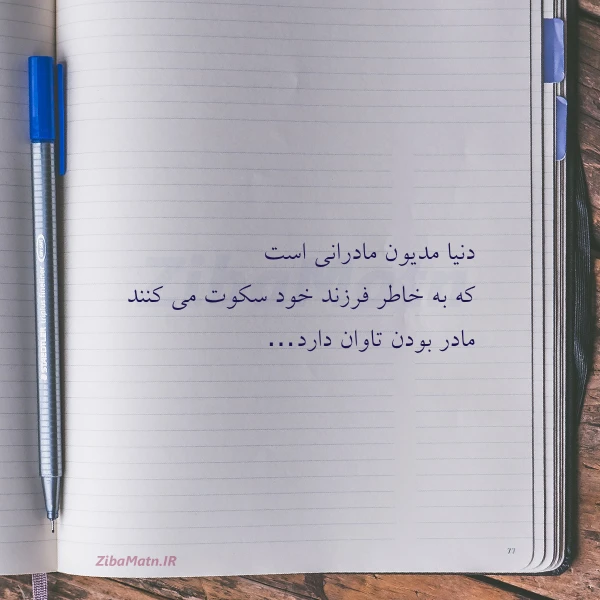 دنیا مدیون مادرانی است
که به خاطر فرزند خود سکوت می کنند
مادر بودن تاوان دارد...
ZibaMatn.IR